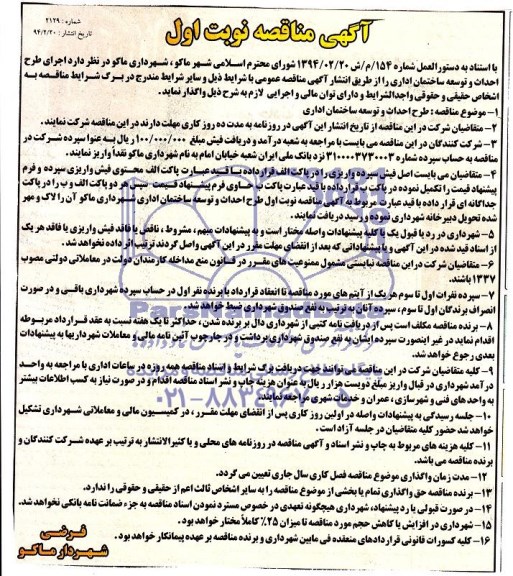 شماره : ۲۱۲۹
تاریخ انتشار : ۹۴/۲/۲۰
آگهی مناقصه نوبت اول
با استناد به دستورالعمل شماره ۱۵۴/م/ش ۱۳۹۴/۰۲/۲۰ شورای محترم اسلامی شهر ماکو ، شهرداری ماکو در نظر دارد اجرای طرح
احداث و توسعه ساختمان اداری را از طریق انتشار آگهی مناقصه عمومی با شرایط ذیل و سایر شرایط مندرج در برگ شرایط مناقصه به
اشخاص حقیقی و حقوقی واجدالشرایط و دارای توان مالی و اجرایی لازم به شرح ذیل واگذار نماید.
۱- موضوع مناقصه : طرح احداث و توسعه ساختمان اداری
۲- متقاضیان شرکت در این مناقصه از تاریخ انتشار این آگهی در روزنامه به مدت ده روز کاری مهلت دارند در این مناقصه شرکت نمایند.
۳- شرکت کنندگان در این مناقصه می بایست با مراجعه به شعبه درآمد و دریافت فیش مبلغ ۱۰۰/۰۰۰/۰۰۰ ریال به عنوان سپرده شرکت در
مناقصه به حساب سپرده شماره ۳۱۰۰۰۰۳۷۳۰۰۰۳ نزد بانک ملی ایران شعبه خیابان امام به نام شهرداری ماکو نقداً واریز نمایند.
۴- متقاضیان می بایست اصل فیش سپرده واریزی را در پاکت الف قرار داده با قید عبارت پاکت الف محتوی فیش واریزی سپرده و فرم
پیشنهاد قیمت را تکمیل نموده در پاکت ب قرار داده با قید عبارت پاکت ب حاوی فرم پیشنهاد قیمت سپس هر دو پاکت الف و ب را در پاکت
جداگانه ای قرار داده با قید عبارت مربوط به آگهی مناقصه نوبت اول طرح احداث و توسعه ساختمان اداری شهرداری ماکو آن را لاک و مهر
شده تحویل دبیرخانه شهرداری نموده و رسید دریافت نمایند.
۵- شهرداری در رد یا قبول یک یا کلیه پیشنهادات واصله مختار است و به پیشنهادات مبهم ، مشروط ، ناقص یا فاقد فیش واریزی یا فاقد هر یک
از اسناد قید شده در این آگهی و یا پیشنهاداتی که بعد از انقضای مهلت مقرر در این آگهی واصل گردند ترتیب اثر داده نخواهد شد.
۶- متقاضیان شرکت در این مناقصه نبایستی مشمول ممنوعیت های مقرر در قانون منع مداخله کارمندان دولت در معاملاتی دولتی مصوب
۱۳۳۷ باشند.
۷- سپرده نفرات اول تا سوم هر یک از آیتم های مورد مناقصه تا انعقاد قرارداد با برنده نفر اول در حساب سپرده شهرداری باقی و در صورت
انصراف برندگان اول تا سوم ، سپرده آنان به ترتیب به نفع صندوق شهرداری ضبط خواهد شد.
۸- برنده مناقصه مکلف است پس از دریافت نامه کتبی از شهرداری دال بر برنده شدن ، حداکثر تا یک هفته نسبت به عقد قرارداد مربوطه
اقدام نماید در غیر اینصورت سپرده ایشان به نفع صندوق شهرداری برداشت و در چارچوب آئین نامه مالی و معاملات شهرداریها به پیشنهادات
بعدی رجوع خواهد شد.
۹- کلیه متقاضیان شرکت در این مناقصه می توانند جهت دریافت برگ شرایط و اسناد مناقصه همه روزه در ساعات اداری با مراجعه به واحد
درآمد شهرداری در قبال واریز مبلغ دویست هزار ریال به عنوان هزینه چاپ و نشر اسناد مناقصه اقدام و در صورت نیاز به کسب اطلاعات بیشتر
به واحد های فنی و شهرسازی ، عمران و خدمات شهری مراجعه نمایند.
۱۰- جلسه رسیدگی به پیشنهادات واصله در اولین روز کاری پس از انقضای مهلت مقرر ، در کمیسیون مالی و معاملاتی شهرداری تشکیل
خواهد شد حضور کلیه متقاضیان در جلسه آزاد است.
۱۱- کلیه هزینه های مربوط به چاپ و نشر اسناد و آگهی مناقصه در روزنامه های محلی و یا کثیرالانتشار به ترتیب بر عهده شرکت کنندگان و
برنده مناقصه می باشد.
۱۲- مدت زمان واگذاری موضوع مناقصه فصل کاری سال جاری تعیین می گردد.
۱۳- برنده مناقصه حق واگذاری تمام یا بخشی از موضوع مناقصه را به سایر اشخاص ثالث اعم از حقیقی و حقوقی را ندارد.
۱۴- در صورت قبولی یا رد پیشنهاد، شهرداری هیچگونه تعهدی در خصوص مسترد نمودن اسناد مناقصه به جزء ضمانت نامه بانکی نخواهد شد.
۱۵- شهرداری در افزایش یا کاهش حجم مورد مناقصه تا میزان ۲۵٪ کاملاً مختار خواهد بود.
۱۶- کلیه کسورات قانونی قراردادهای منعقده فی مابین شهرداری و برنده مناقصه بر عهده پیمانکار خواهد بود.
فرضی
شهردار ماکو
ParsNamadData
۰۲۱-۸۸۳۴۹۶۷۰-۵